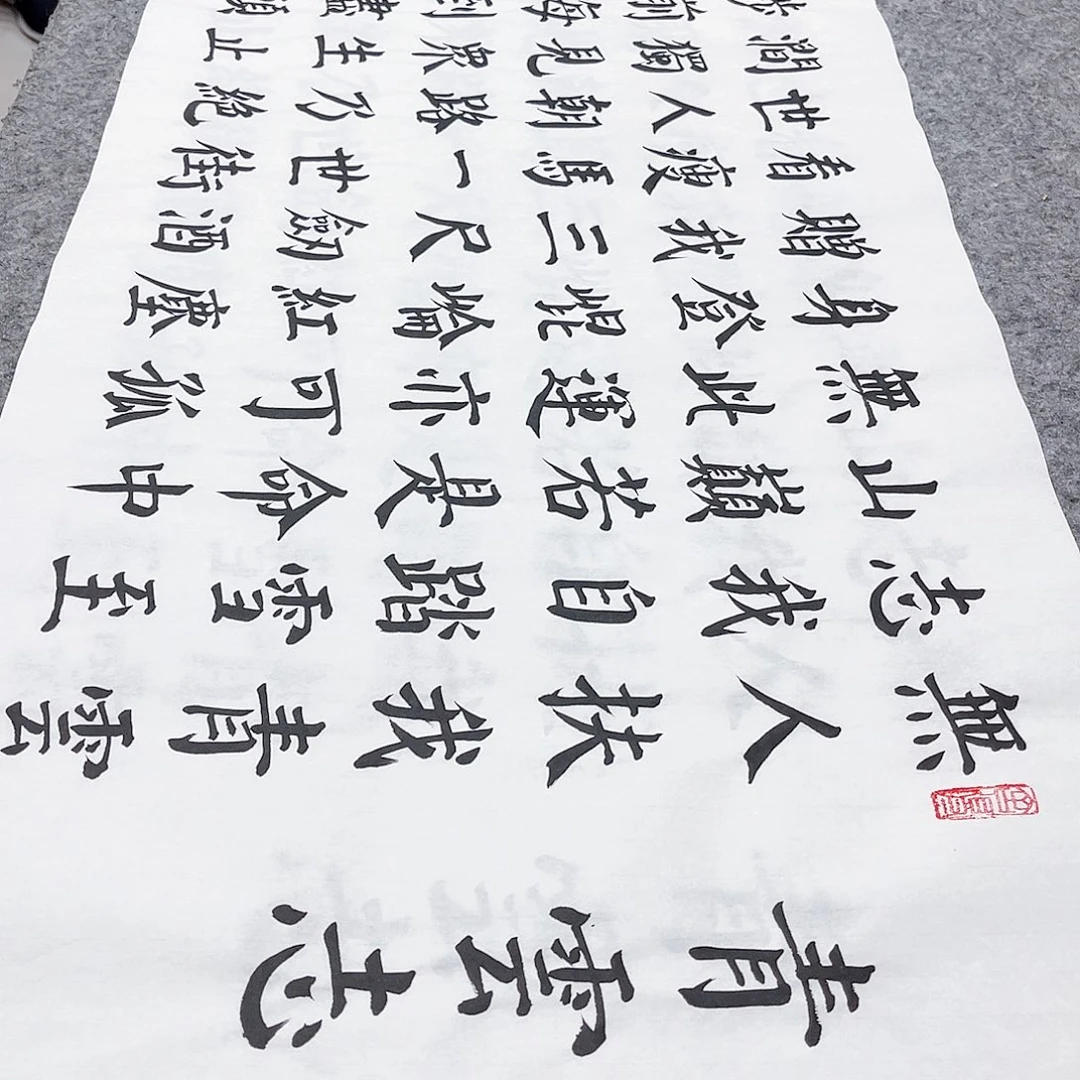 青雲志
無人扶我青雲
志我自踏雪至
山巔若是命中
無此運亦可孤
身登崐崘紅塵
贈我三尺劒酒
看瘦馬一世街
世人朝路乃絕
間獨見眾生止
步前海到盡頭